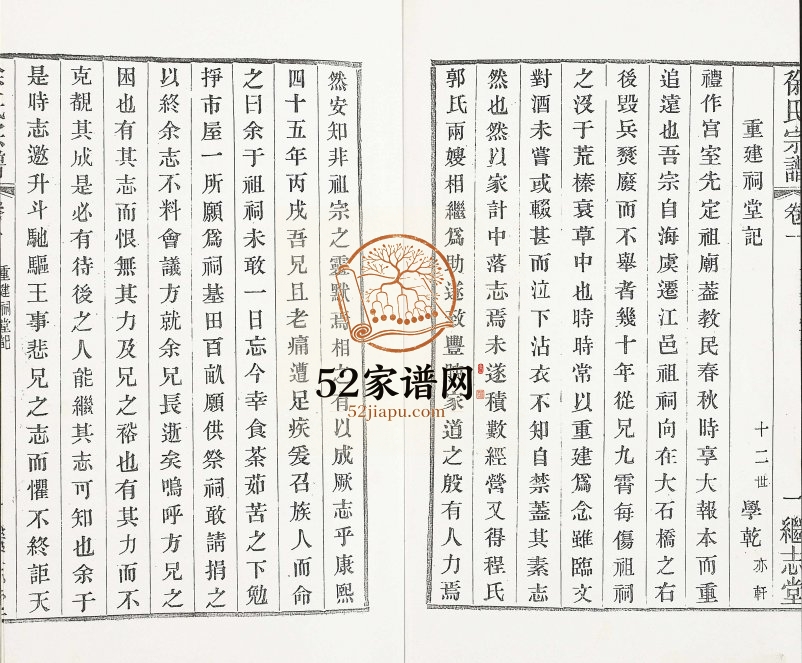 徐氏宗譜
卷一
一
繼志堂
重建祠堂記
十二世
學乾
亦軒
禮作宮室先定祖廟葢教民春秋時享大報本而重
追遠也吾宗自海虞遷江邑祖祠向在大石橋之右
後毀兵燹廢而不舉者幾十年從兄九霄每傷祖祠
之沒于荒榛衰草中也時時常以重建爲念雖臨文
對酒未嘗或輟甚而泣下沾衣不知自禁蓋其素志
然也然以家計中落志焉未遂積數經營又得程氏
郭氏兩嫂相繼爲助遂致豐 家道之殷有人力焉
然安知非祖宗之靈默焉相之有以成厥志乎康熙
四十五年丙戌吾兄且老痛遭足疾爰召族人而命
之曰余于祖祠未敢一日忘今幸食荼茹苦之下勉
掙市屋一所願爲祠基田百畝願供祭祠敢請捐之
以終余志不料會議方就余兄長逝矣嗚呼方兄之
困也有其志而恨無其力及兄之裕也有其力而不
克覩其成是必有待後之人能繼其志可知也余于
是時志邀升斗馳驅王事悲兄之志而懼不終詎天
重建祠堂記
52家谱网
52jiapu.com